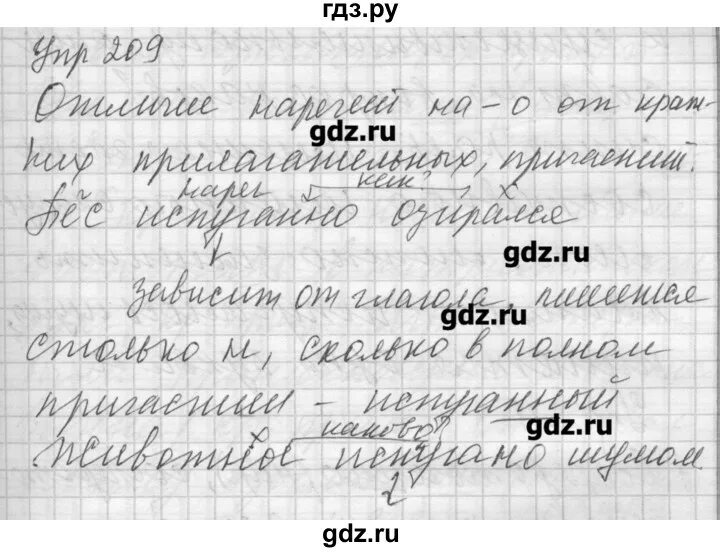 гдз.ру
Упр 209
Отличие наречий на -о от крат-
gdz.ru
ких прилагательных, причастий.
нареч как?
Пёс испуганно озирался
gdz.ru
зависит от глагола, пишется
gdz.ru
столько н, сколько в полном
причастии – испуганный
gdz.ru
каково?
Животное испугано шумом
gdz.ru